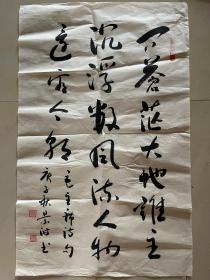 问蒼茫大地誰主
沉浮数风流人物
還看今朝
毛主席詩句
庚子秋
书